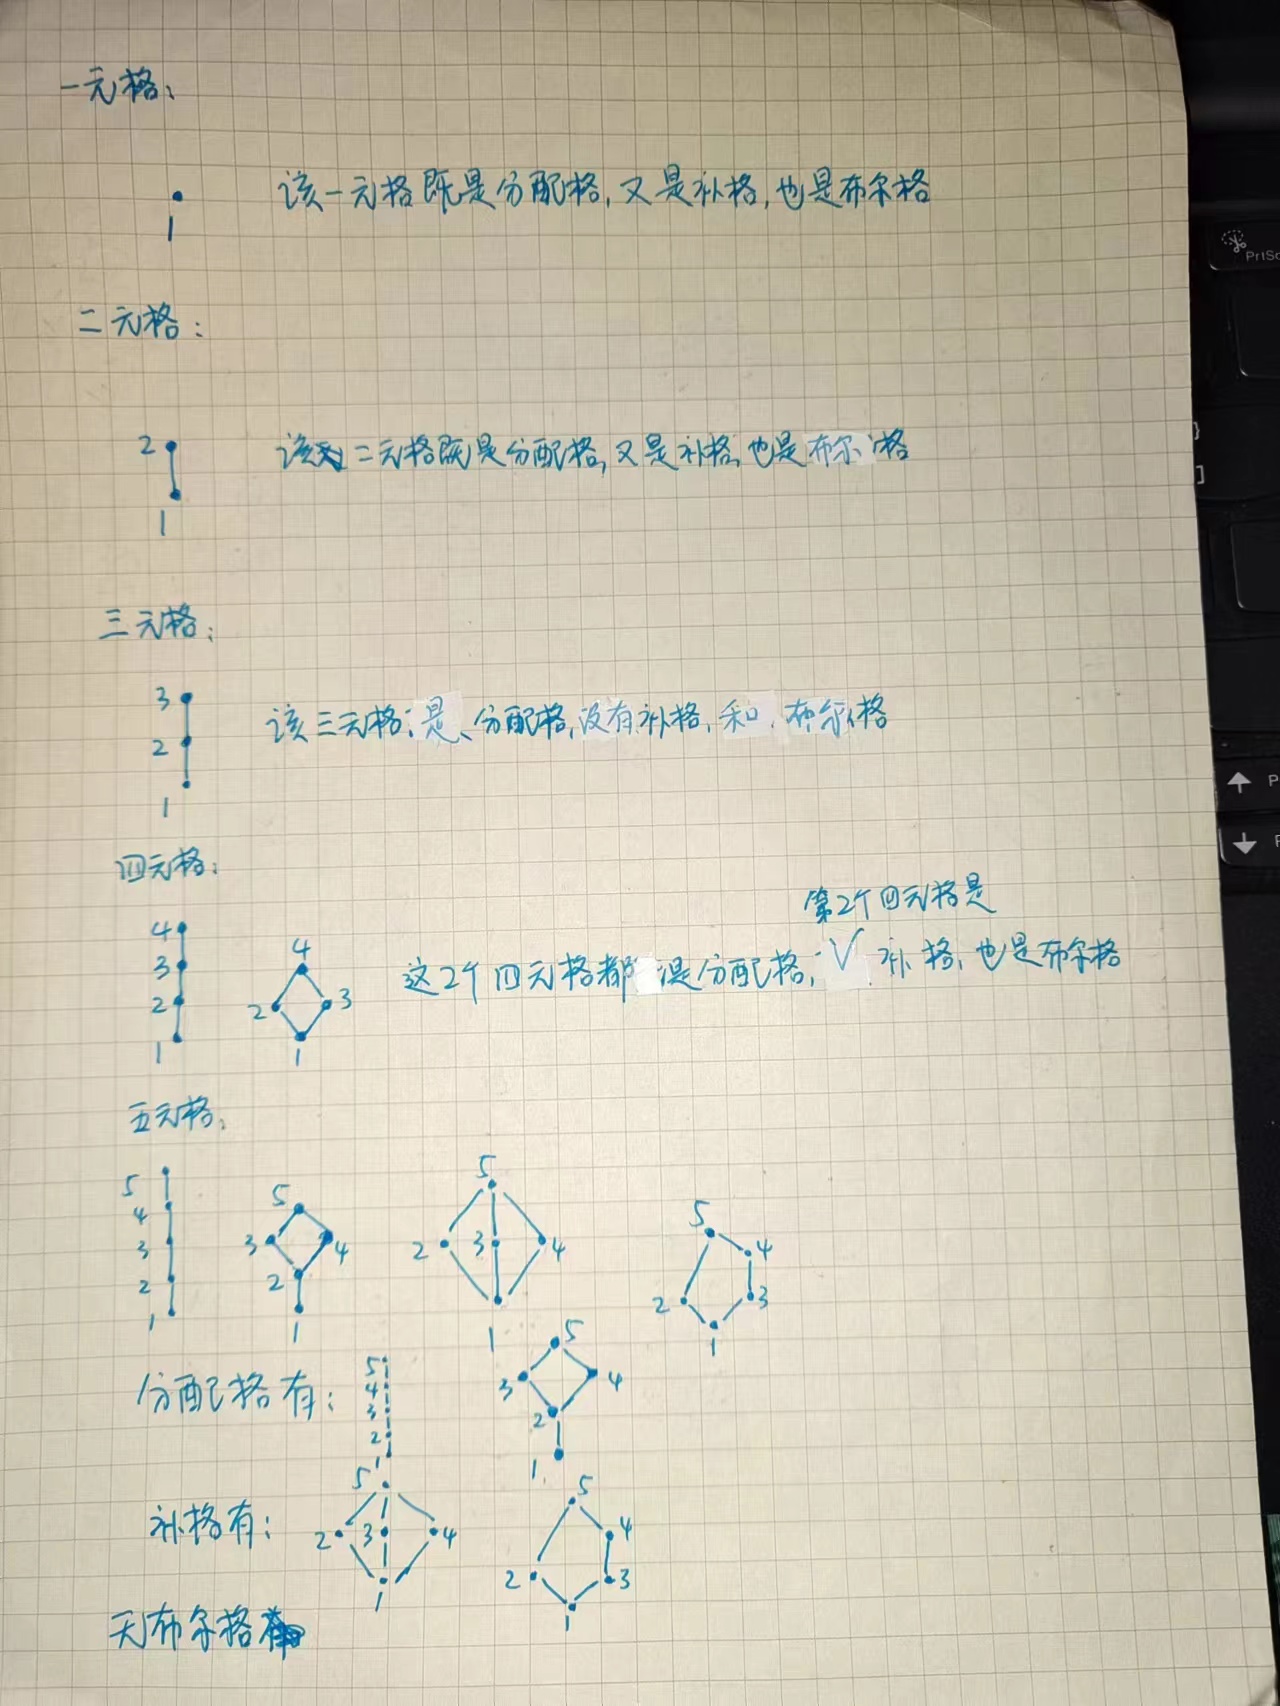 一元格:
该一元格既是分配格,又是补格,也是布尔格
1
二元格:
2
该二元格既是分配格,又是补格,也是布尔格
1
三元格:
3
该三元格是分配格,没有补格,和布尔格
2
1
四元格:
第2个四元格是
4
3
2
1
4
2 3
1
这2个四元格都是分配格,√补格,也是布尔格
五元格:
5
4
3
2
1
5
3 4
2
1
5
2 3 4
1
5
4
2 3
1
分配格有:
5
4
3
2
1
5
3 4
2
1
补格有:
5
2 3 4
1
5
4
2 3
1
无布尔格
PrtSc
}
]
P